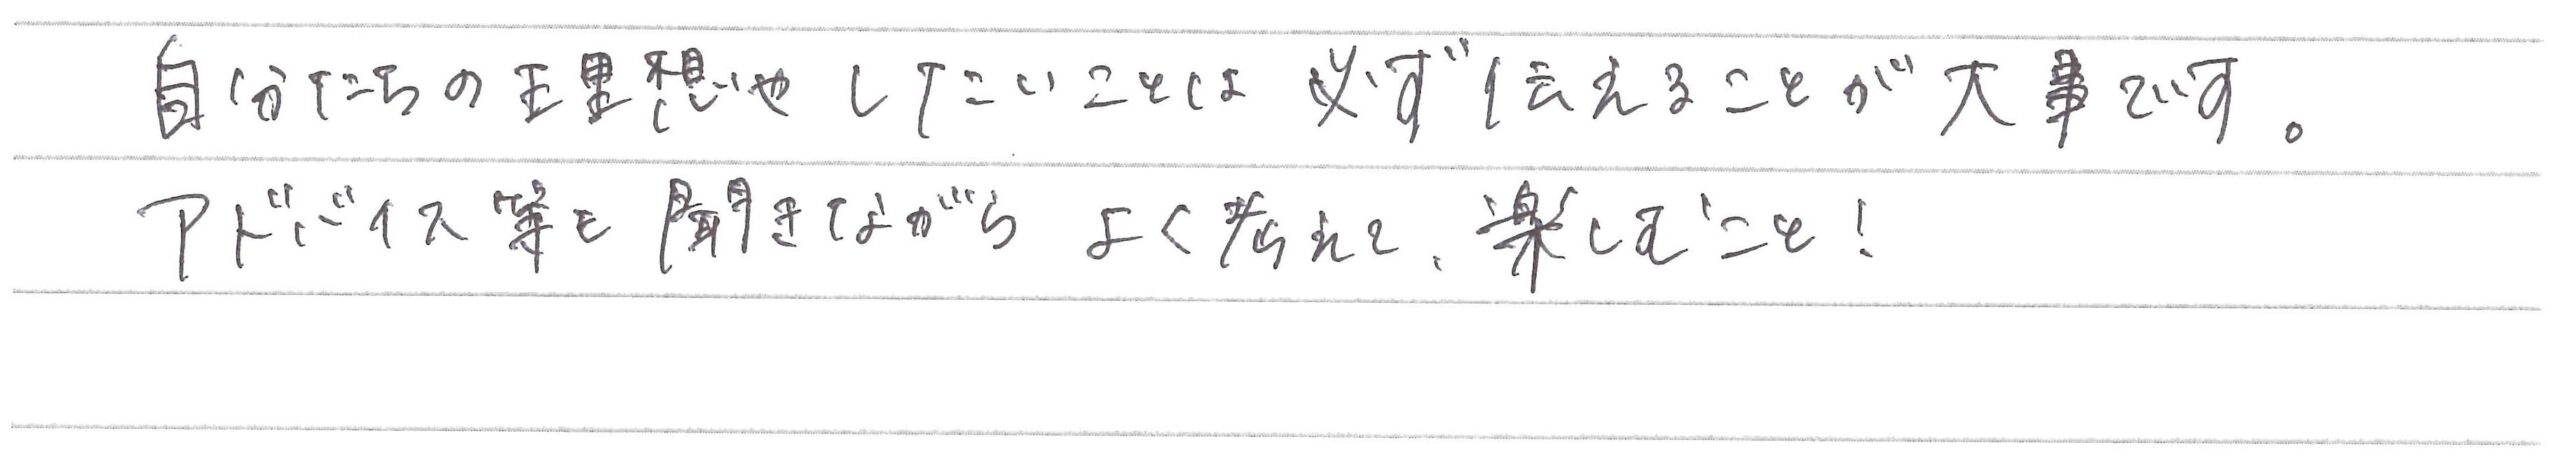 自分たちの理想や したいことは 必ず伝えることが大事です。
アドバイス等も聞きながら よく考えて、楽しむこと！